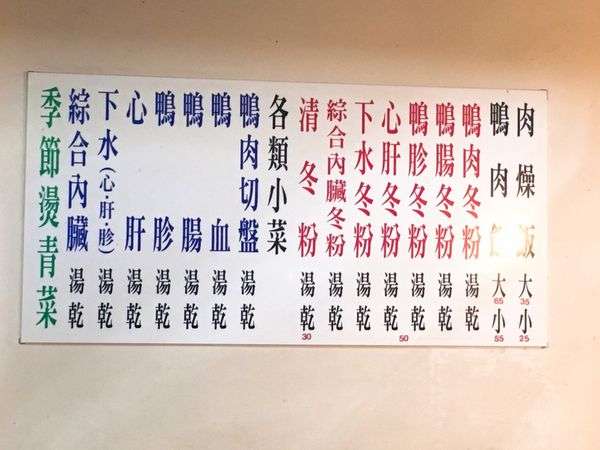 肉燥飯 大35 小25
鴨肉飯 大65 小55
鴨肉冬粉 湯 乾
鴨腸冬粉 湯 乾
鴨胗冬粉 湯 乾 50
心肝冬粉 湯 乾
下水冬粉 湯 乾
綜合內臟冬粉 湯 乾
清冬粉 湯 乾 30
各類小菜
鴨肉切盤 湯 乾
鴨血 湯 乾
鴨腸 湯 乾
鴨胗 湯 乾
心肝 湯 乾
下水(心·肝·胗) 湯 乾
綜合內臟 湯 乾
季節燙青菜